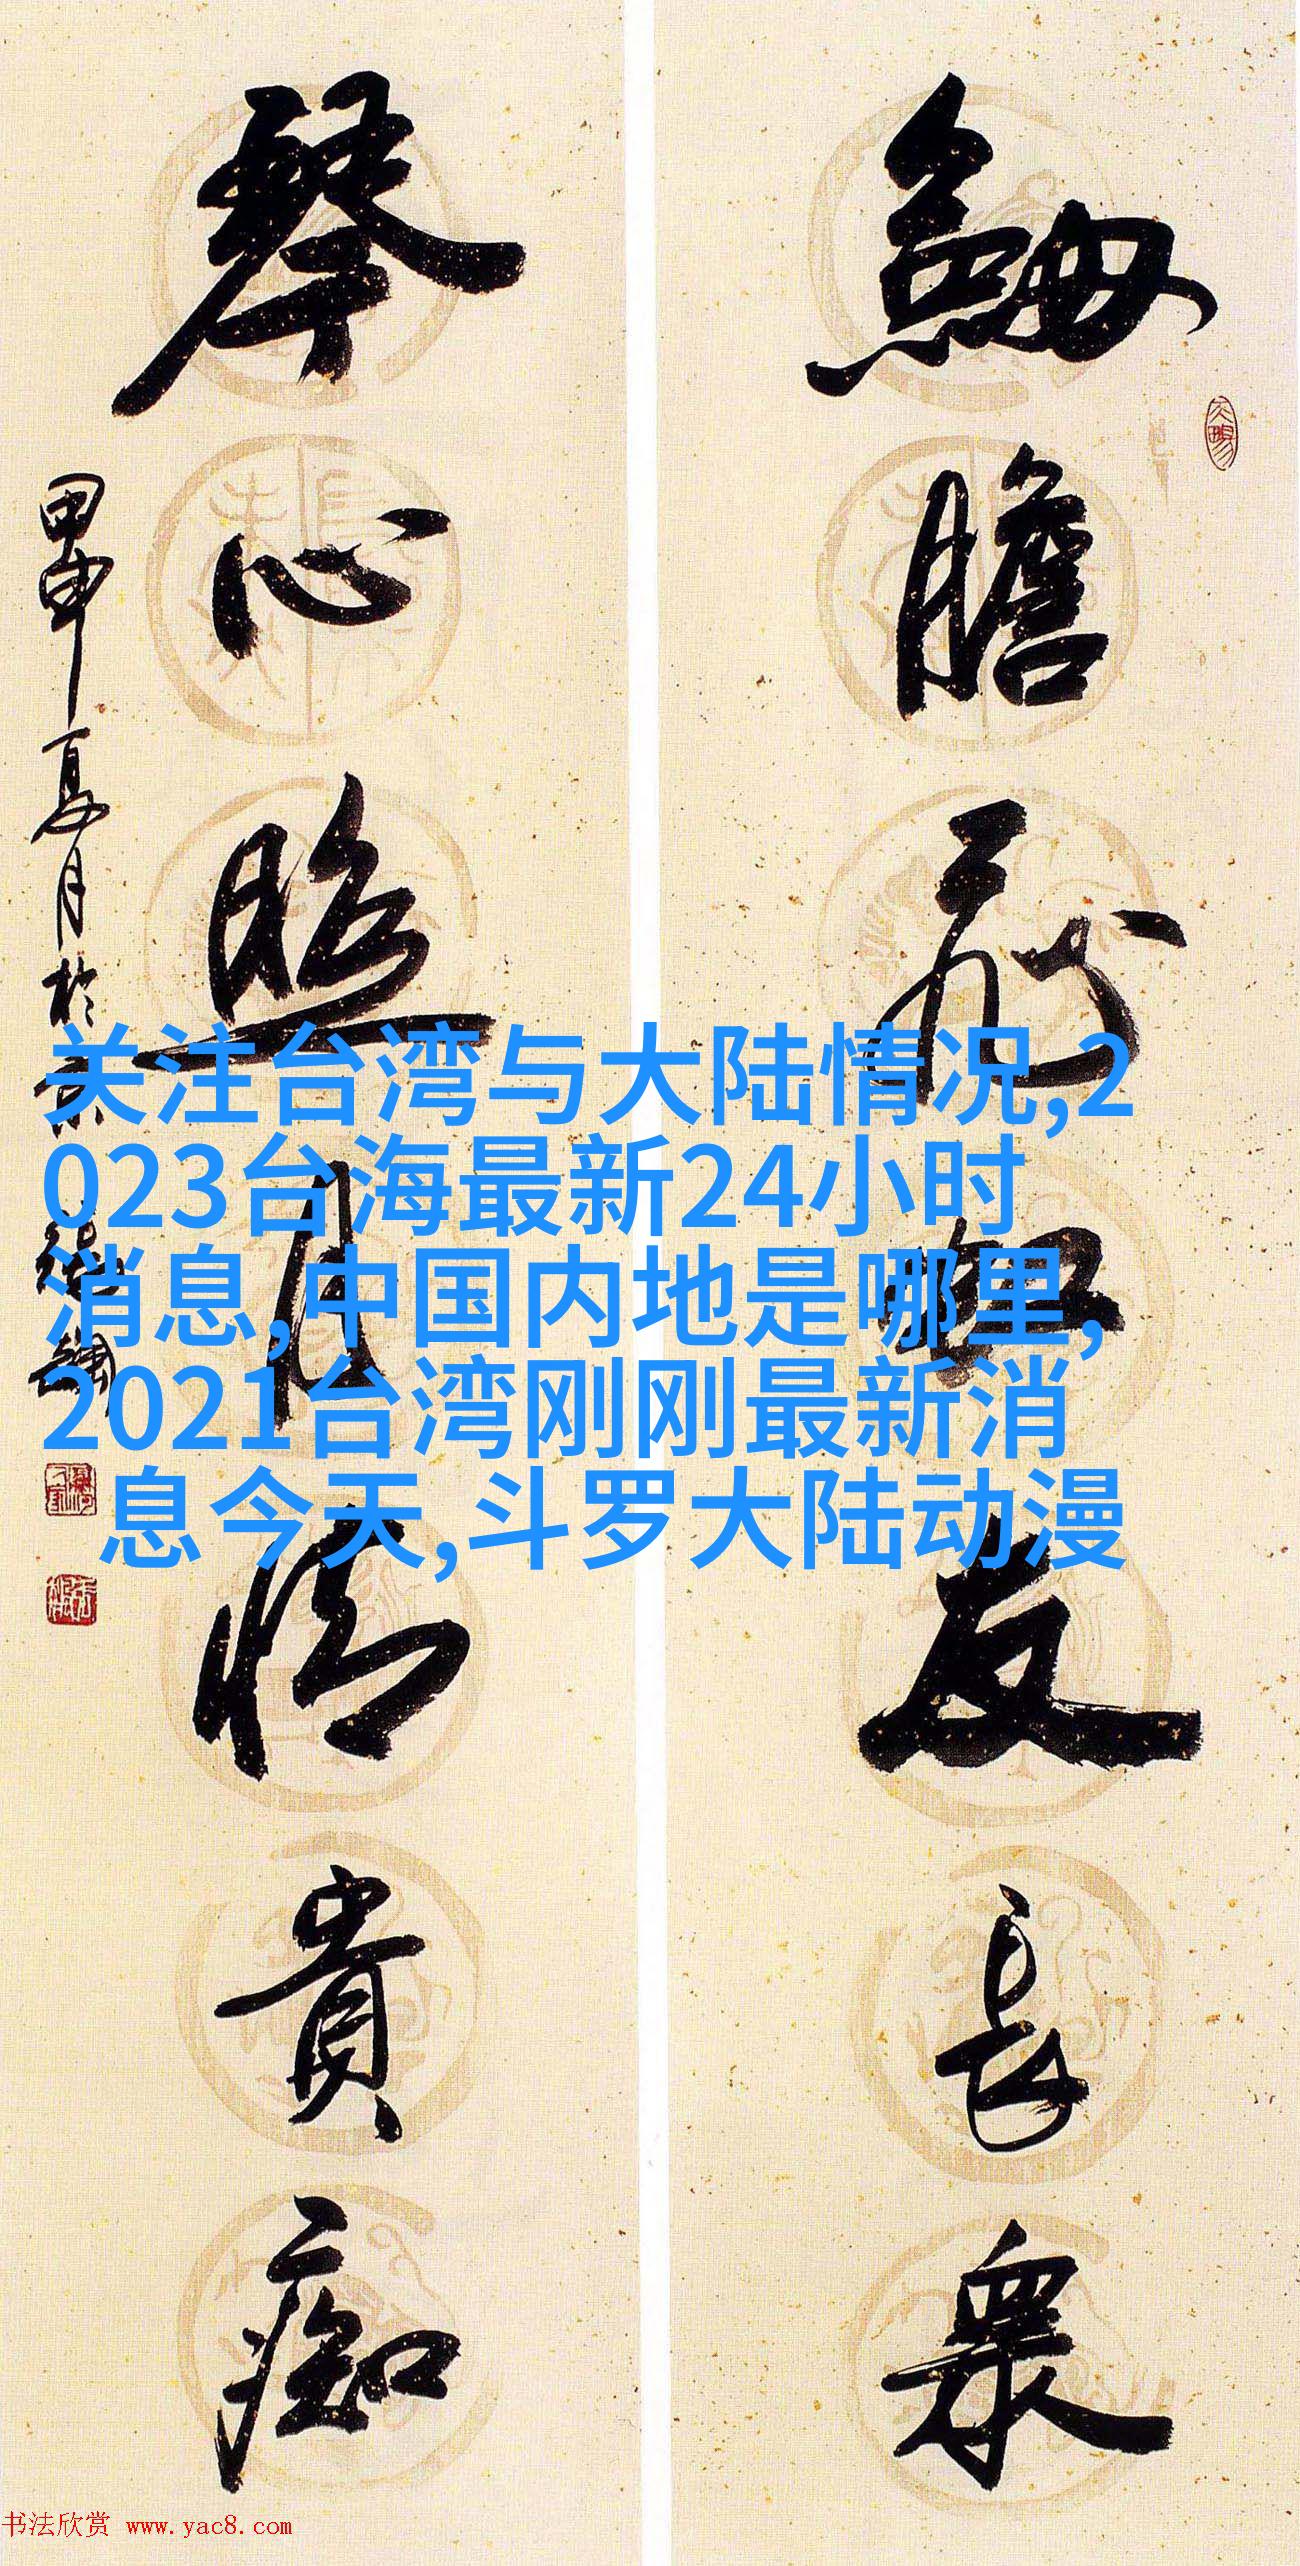 劍膽友長眾
琴心照月情貴痴
甲申夏月於京
关注台湾与大陆情况,2
023台海最新24小时
消息,中国内地是哪里,
2021台湾刚刚最新消
息 今天,斗罗大陆动漫
书法欣赏 www.yac8.com